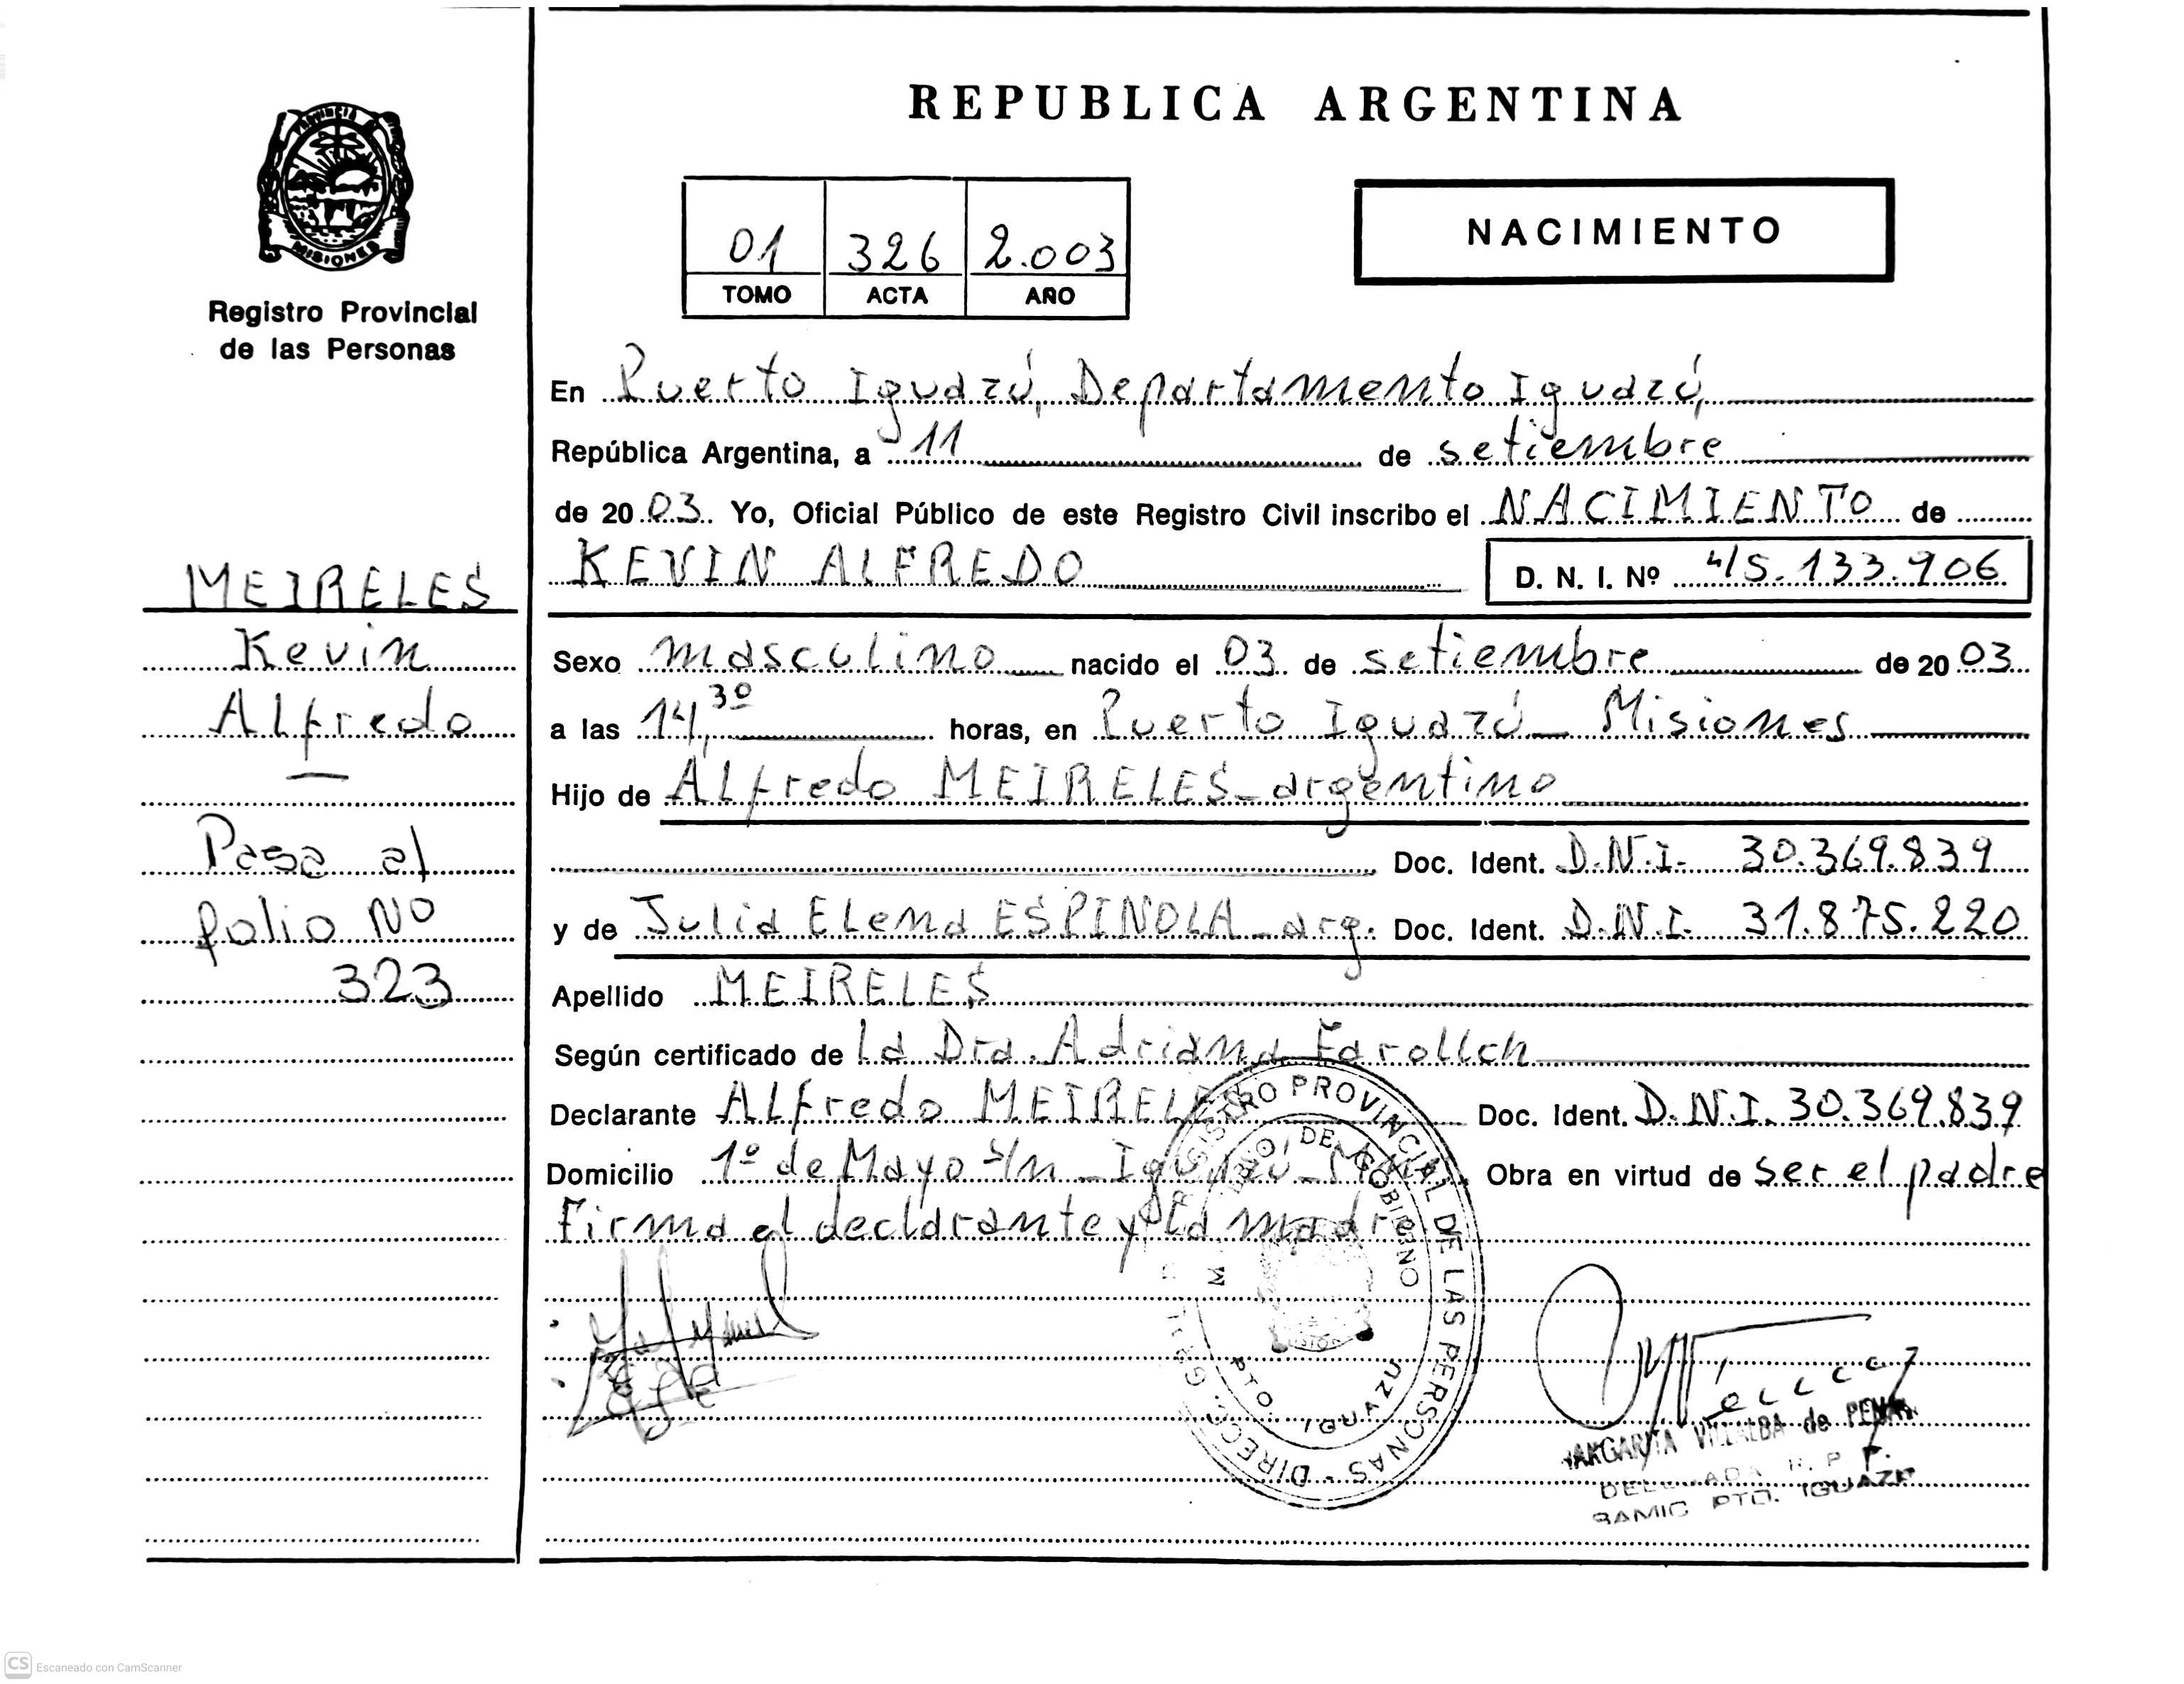 REPUBLICA ARGENTINA
PROVINCIA
MISIONES
Registro Provincial
de las Personas
01 326 2.003
TOMO ACTA AÑO
NACIMIENTO
En Puerto Iguazú, Departamento Iguazú,
República Argentina, a 11 de setiembre
de 2003. Yo, Oficial Público de este Registro Civil inscribo el NACIMIENTO de
KEVIN ALFREDO D. N. I. Nº 45.133.906
Sexo masculino nacido el 03 de setiembre de 2003
a las 14,30 horas, en Puerto Iguazú_ Misiones
Hijo de Alfredo MEIRELES_argentino
Doc. Ident. D.N.I. 30.369.839
y de Julia Elena ESPINOLA_arg. Doc. Ident. D.N.I. 31.875.220
Apellido MEIRELES
Según certificado de la Dra. Adriana
Declarante Alfredo MEIRELES Doc. Ident. D.N.I. 30.369.839
Domicilio 1º de Mayo s/n_Iguazú_ Obra en virtud de ser el padre
Firma el declarante y la madre
MEIRELES
Kevin
Alfredo
Pasa al
folio Nº
323
DIREC. GRAL. REGISTRO PROVINCIAL DE LAS PERSONAS
DE GOBIERNO
PTO. IGUAZU
MARGARITA VILLALBA de
DELEGADA R. P. P.
SAMIC PTO. IGUAZU
CS Escaneado con CamScanner